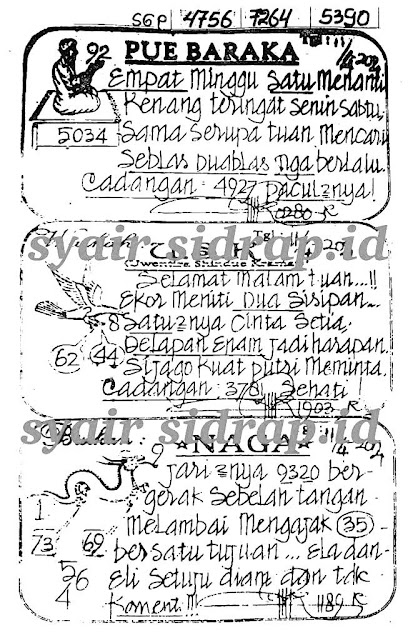 SGP 4756 7264 5390
92 PUE BARAKA Tgl 11/4 202
Empat Minggu Satu Menanti
Kenang teringat Senin Sabtu,
5034 Sama Serupa tuan Mencari
Seblas Duablas Tiga berlalu.
Cadangan : 4927 pacul2nya!
0280 R
syair sidrap.id
Tgl 11/4 202
Selamat Malam tuan...!!
Ekor Meniti Dua Sisipan...
8 Satu2nya Cinta Setia.
62 44 Delapan Enam jadi harapan.
Sijago Kuat putri Meminta.
Cadangan : 3781 Sehati!
1903 R
syair sidrap.id
9 *NAGA* 11/4 202
jari2nya 9320 ber-
1 gerak Sebelah tangan
Melambai Mengajak (35) -
73 69 bersatu tujuan ... Ela dan-
5 76 Eli Setuju diam dan tdk
4 Koment !!!
1189 R